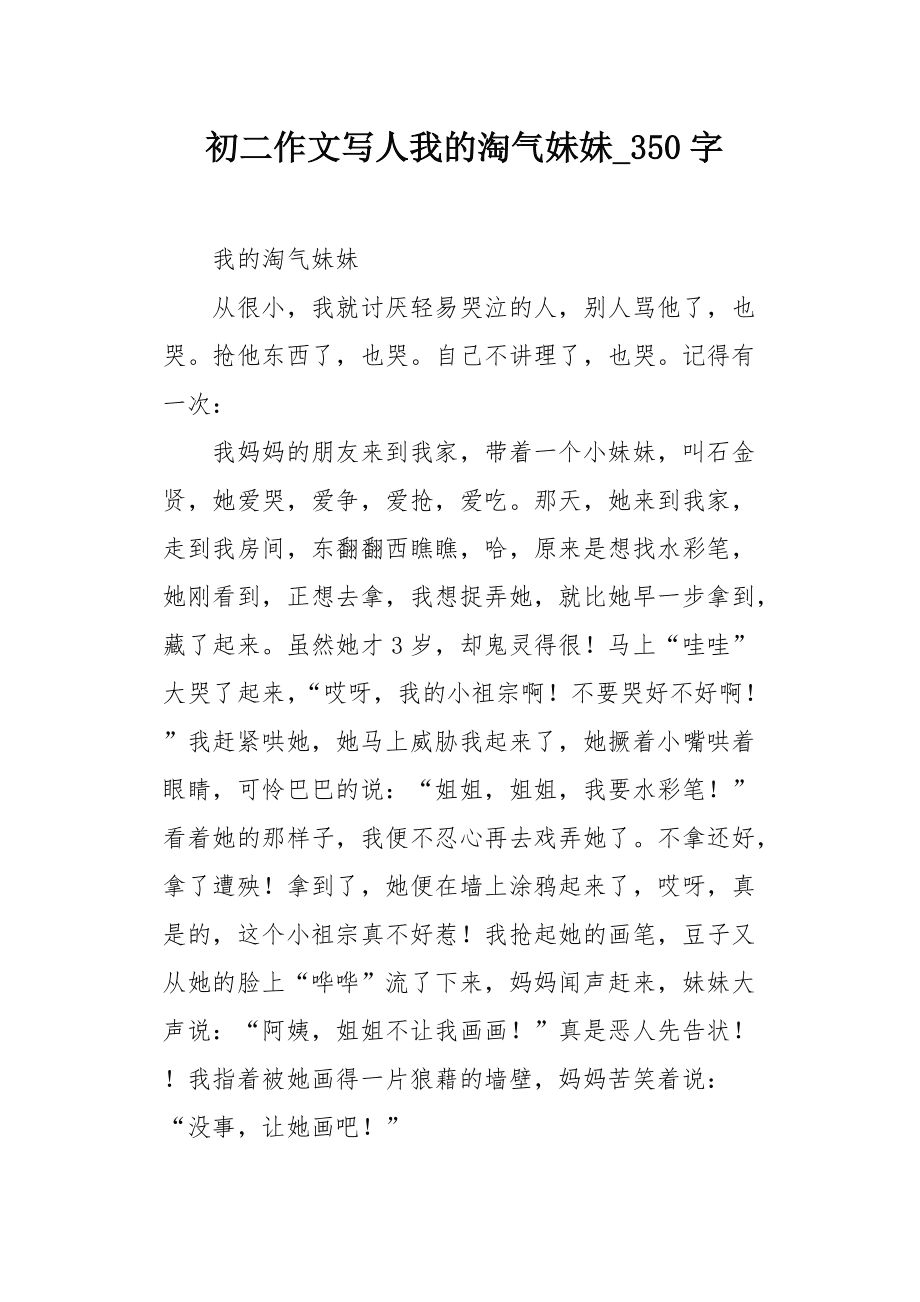 初二作文写人我的淘气妹妹_350字
我的淘气妹妹
从很小，我就讨厌轻易哭泣的人，别人骂他了，也
哭。抢他东西了，也哭。自己不讲理了，也哭。记得有
一次：
我妈妈的朋友来到我家，带着一个小妹妹，叫石金
贤，她爱哭，爱争，爱抢，爱吃。那天，她来到我家，
走到我房间，东翻翻西瞧瞧，哈，原来是想找水彩笔，
她刚看到，正想去拿，我想捉弄她，就比她早一步拿到，
藏了起来。虽然她才3岁，却鬼灵得很！马上“哇哇”
大哭了起来，“哎呀，我的小祖宗啊！不要哭好不好啊！
”我赶紧哄她，她马上威胁我起来了，她撅着小嘴哄着
眼睛，可怜巴巴的说：“姐姐，姐姐，我要水彩笔！”
看着她的那样子，我便不忍心再去戏弄她了。不拿还好，
拿了遭殃！拿到了，她便在墙上涂鸦起来了，哎呀，真
是的，这个小祖宗真不好惹！我抢起她的画笔，豆子又
从她的脸上“哗哗”流了下来，妈妈闻声赶来，妹妹大
声说：“阿姨，姐姐不让我画画！”真是恶人先告状！
！我指着被她画得一片狼藉的墙壁，妈妈苦笑着说：
“没事，让她画吧！”